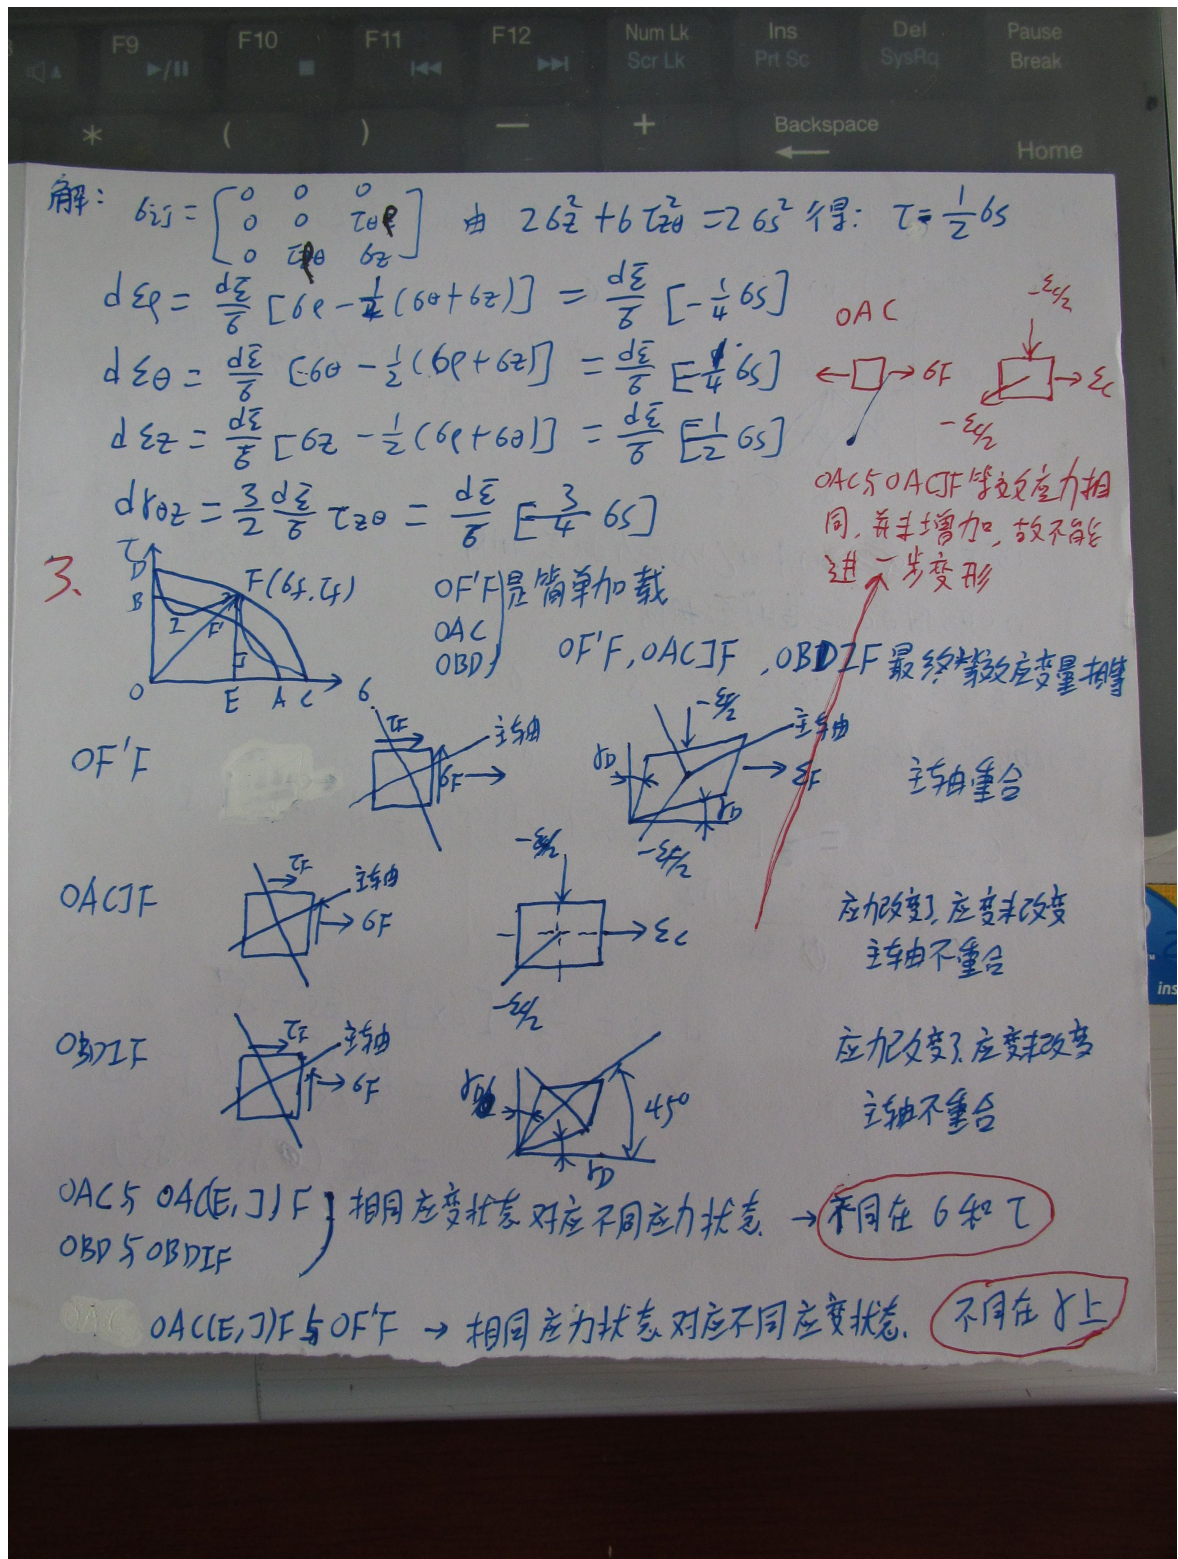 F9 F10 F11 F12 Num Lk Scr Lk Ins Prt Sc Del SysRq Pause Break
* ( ) — + Backspace Home
解: σij = [0 0 0; 0 0 τθz; 0 τzθ σz] 由 2σz² + 6τzθ² = 2σs² 得: τ = 1/2 σs
dερ = dε̄/σ̄ [σρ - 1/2(σθ+σz)] = dε̄/σ̄ [-1/4 σs]
dεθ = dε̄/σ̄ [σθ - 1/2(σρ+σz)] = dε̄/σ̄ [-1/4 σs]
dεz = dε̄/σ̄ [σz - 1/2(σρ+σθ)] = dε̄/σ̄ [1/2 σs]
dγθz = 3/2 dε̄/σ̄ τzθ = dε̄/σ̄ [3/4 σs]
OAC
σF
-εc/2
εc
-εc/2
OAC与OACJF等效应力相
同,并未增加,故不能
进一步变形
3.
τ D B F(σf,τf) I F' J O E A C σ
OF'F
OAC
OBD
是简单加载
OF'F,OACJF,OBDIF最终等效应变量相等
OF'F τF 主轴 σF γD 主轴 εF γD 主轴重合
OACJF τF 主轴 σF εc 应力改变了,应变未改变
主轴不重合
OBDIF τF 主轴 σF γD 45° γD 应力改变了,应变未改变
主轴不重合
OAC与OAC(E,J)F
OBD与OBDIF
相同应变状态对应不同应力状态. → 不同在σ和τ
OAC(E,J)F与OF'F → 相同应力状态对应不同应变状态. 不同在γ上
ins